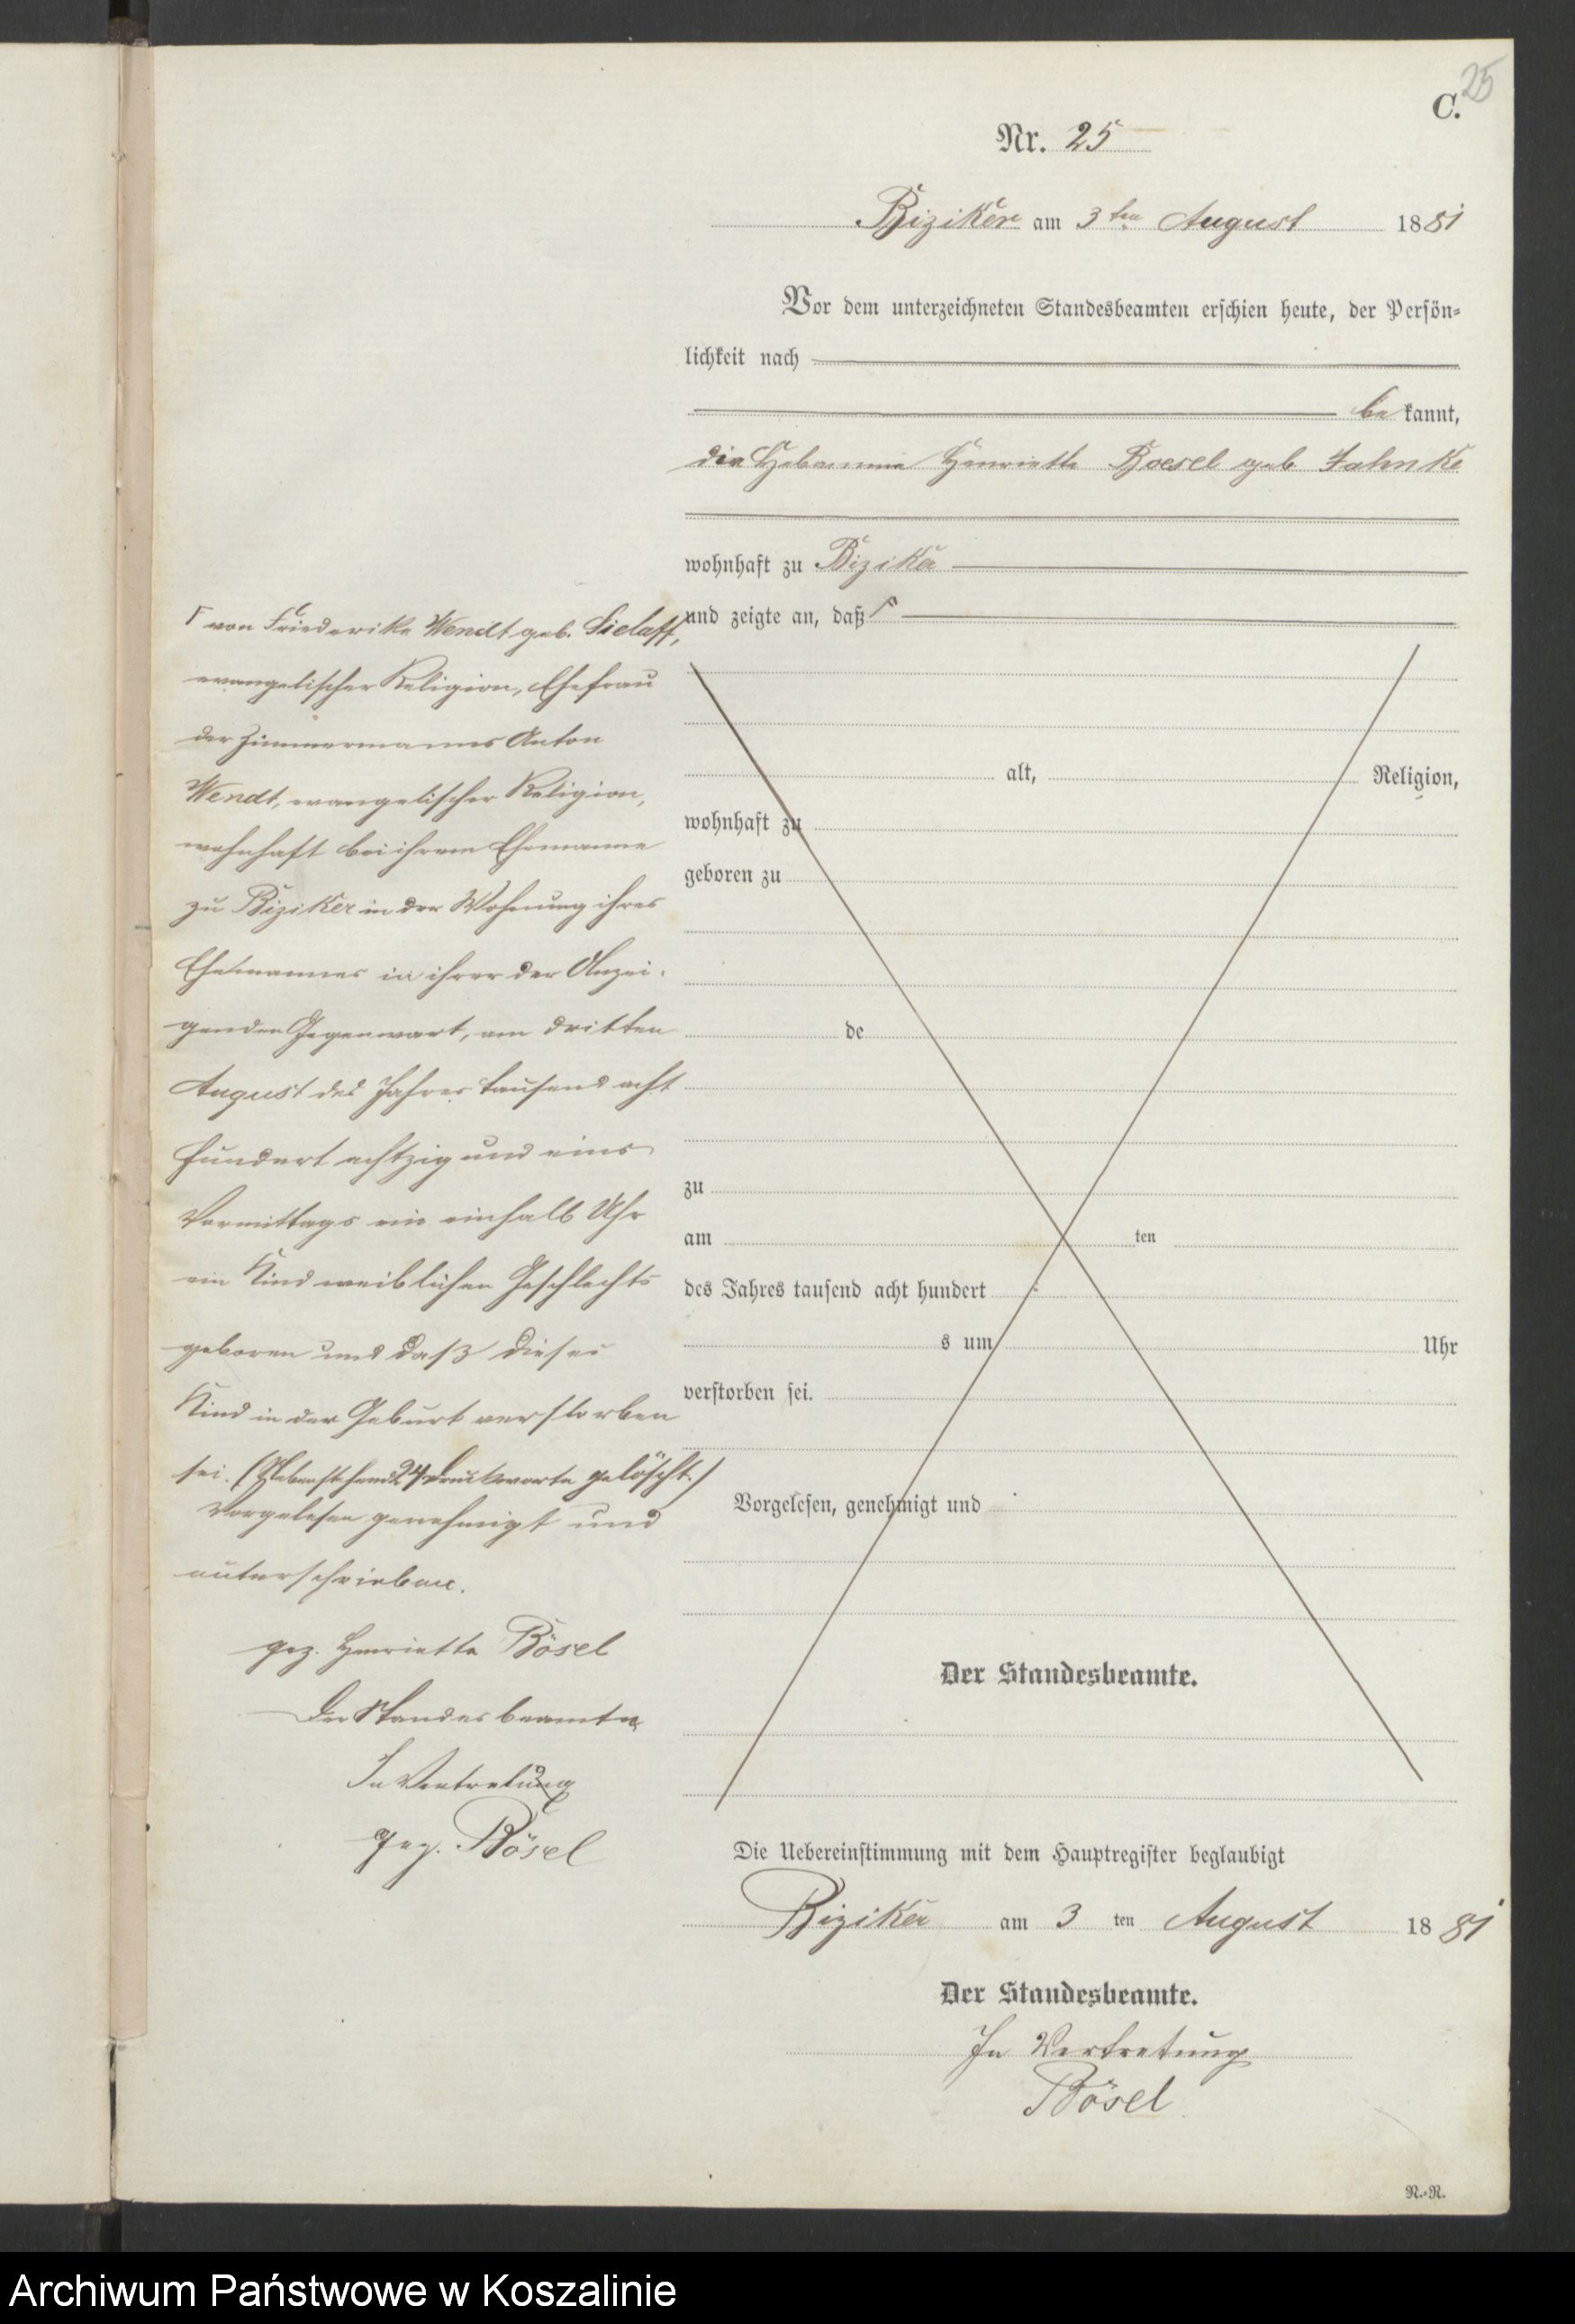 25
C.
Nr. 25
Biziker am 3ten August 1881
Vor dem unterzeichneten Standesbeamten erschien heute, der Persön-
lichkeit nach
be kannt,
die Hebamme Henriette Boesel geb Jahnke
wohnhaft zu Biziker
und zeigte an, daß Γ
Γ von Friederike Wendt geb. Sielaff,
evangelischer Religion, Ehefrau
des Zimmermanns Anton
Wendt, evangelischer Religion,
wohnhaft bei ihrem Ehemanne
zu Biziker in der Wohnung ihres
Ehemannes in ihrer der Anzei-
genden Gegenwart, am dritten
August des Jahres tausend acht
hundert achtzig und eins
Vormittags um einhalb Uhr
ein Kind weiblichen Geschlechts
geboren und daß dieses
Kind in der Geburt verstorben
sei. (Nebenstehend 24 Druckworte gelöscht.)
Vorgelesen genehmigt und
unterschrieben.
gez. Henriette Bösel
Der Standesbeamte
In Vertretung
gez. Bösel
alt, Religion,
wohnhaft zu
geboren zu
de
zu
am ten
des Jahres tausend acht hundert
s um Uhr
verstorben sei.
Vorgelesen, genehmigt und
Der Standesbeamte.
Die Uebereinstimmung mit dem Hauptregister beglaubigt
Biziker am 3 ten August 1881
Der Standesbeamte.
In Vertretung
Bösel
N.-R.
Archiwum Państwowe w Koszalinie